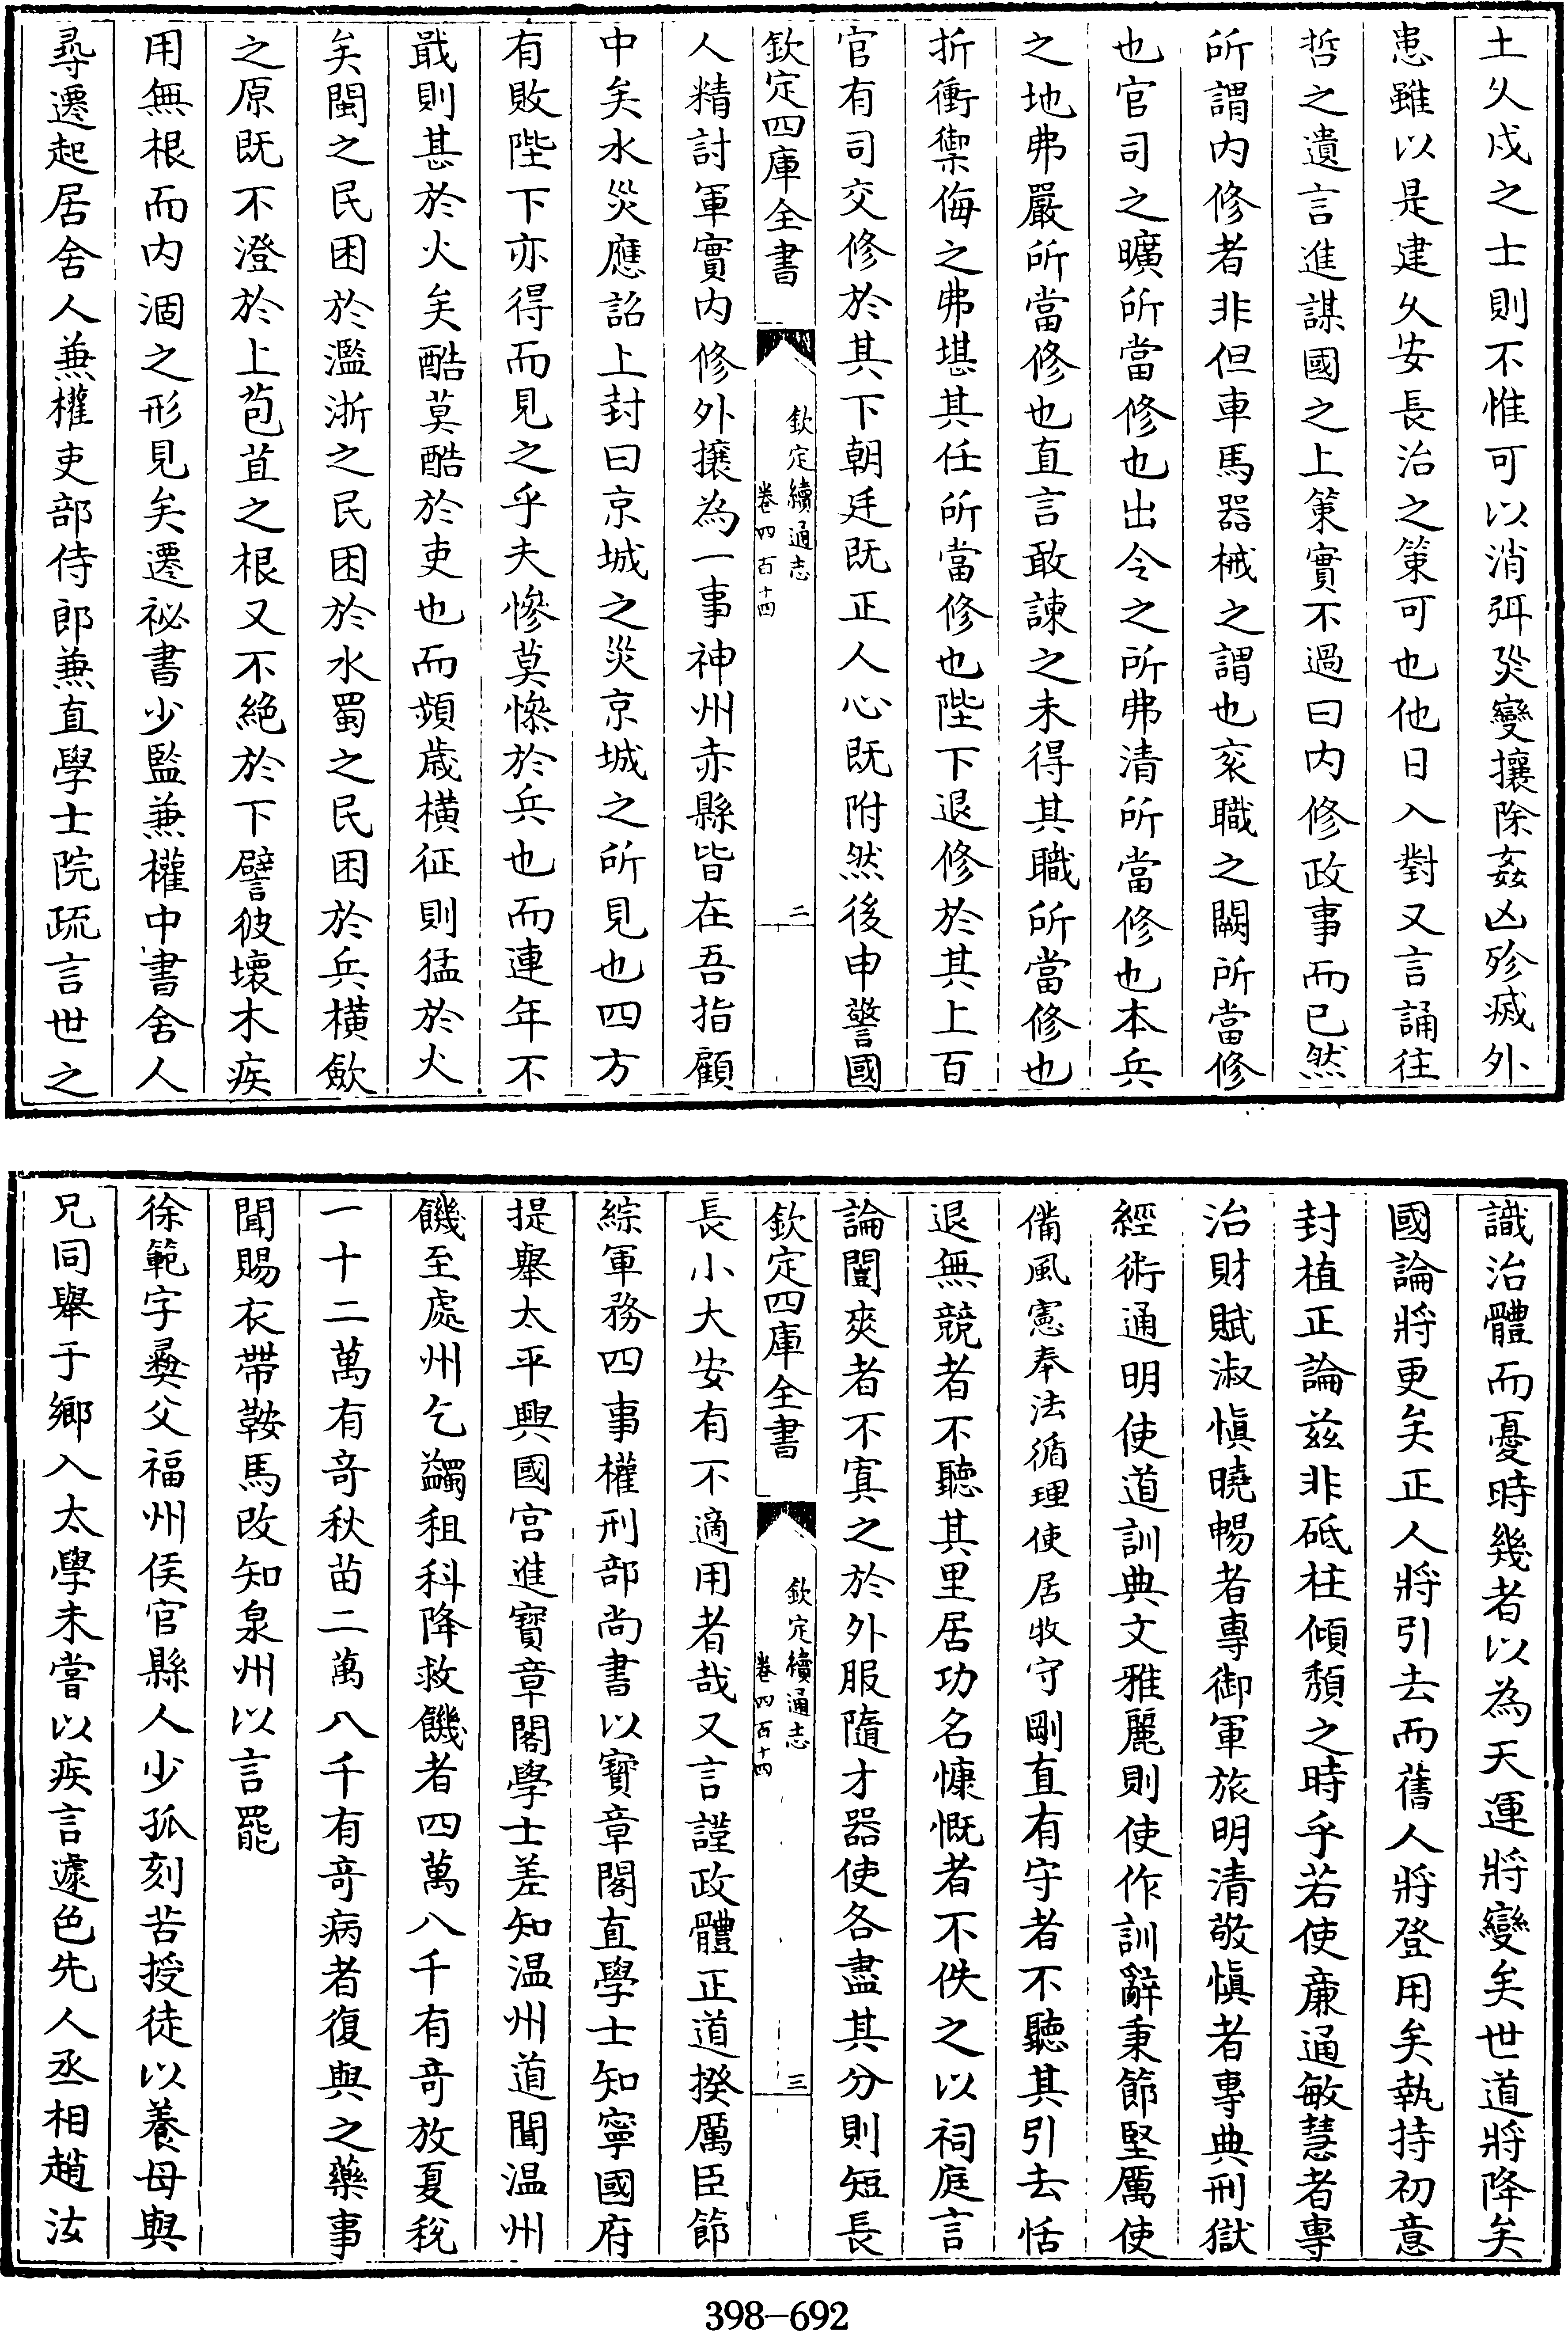 土久戍之士則不惟可以消弭災變攘除姦凶殄㓕外
患雖以是建久安長治之策可也他日入對又言誦往
哲之遺言進謀國之上策實不過曰内修政事而已然
所謂内修者非但車馬器械之謂也衮職之闕所當修
也官司之曠所當修也出令之所弗清所當修也本兵
之地弗嚴所當修也直言敢諫之未得其職所當修也
折衝禦侮之弗堪其任所當修也陛下退修於其上百
官有司交修於其下朝廷既正人心既附然後申警國
欽定四庫全書
欽定續通志
卷四百十四
二
人精討軍實内修外攘為一事神州赤縣皆在吾指顧
中矣水災應詔上封曰京城之災京城之所見也四方
有敗陛下亦得而見之乎夫慘莫慘於兵也而連年不
戢則甚於火矣酷莫酷於吏也而頻歲橫征則猛於火
矣閩之民困於濫浙之民困於水蜀之民困於兵橫歛
之原既不澄於上苞苴之根又不絶於下譬彼壞木疾
用無根而内涸之形見矣遷祕書少監兼權中書舍人
尋遷起居舍人兼權吏部侍郎兼直學士院疏言世之
識治體而憂時幾者以為天運將變矣世道將降矣
國論將更矣正人將引去而舊人將登用矣執持初意
封植正論兹非砥柱傾頽之時乎若使亷通敏慧者專
治財賦淑慎曉暢者專御軍旅明清敬慎者專典刑獄
經術通明使道訓典文雅麗則使作訓辭秉節堅厲使
備風憲奉法循理使居牧守剛直有守者不聽其引去恬
退無競者不聽其里居功名慷慨者不佚之以祠庭言
論闓爽者不寘之於外服隨才器使各盡其分則短長
欽定四庫全書
欽定續通志
卷四百十四
三
長小大安有不適用者哉又言謹政體正道揆厲臣節
綜軍務四事權刑部尚書以寳章閣直學士知寧國府
提舉太平興國宫進寳章閣學士差知温州道聞温州
饑至處州乞蠲租科降救饑者四萬八千有竒放夏税
一十二萬有竒秋苗二萬八千有竒病者復與之藥事
聞賜衣帶鞍馬改知泉州以言罷
徐範字彛父福州侯官縣人少孤刻苦授徒以養母與
兄同舉于鄉入太學未嘗以疾言遽色先人丞相趙汝
398-692